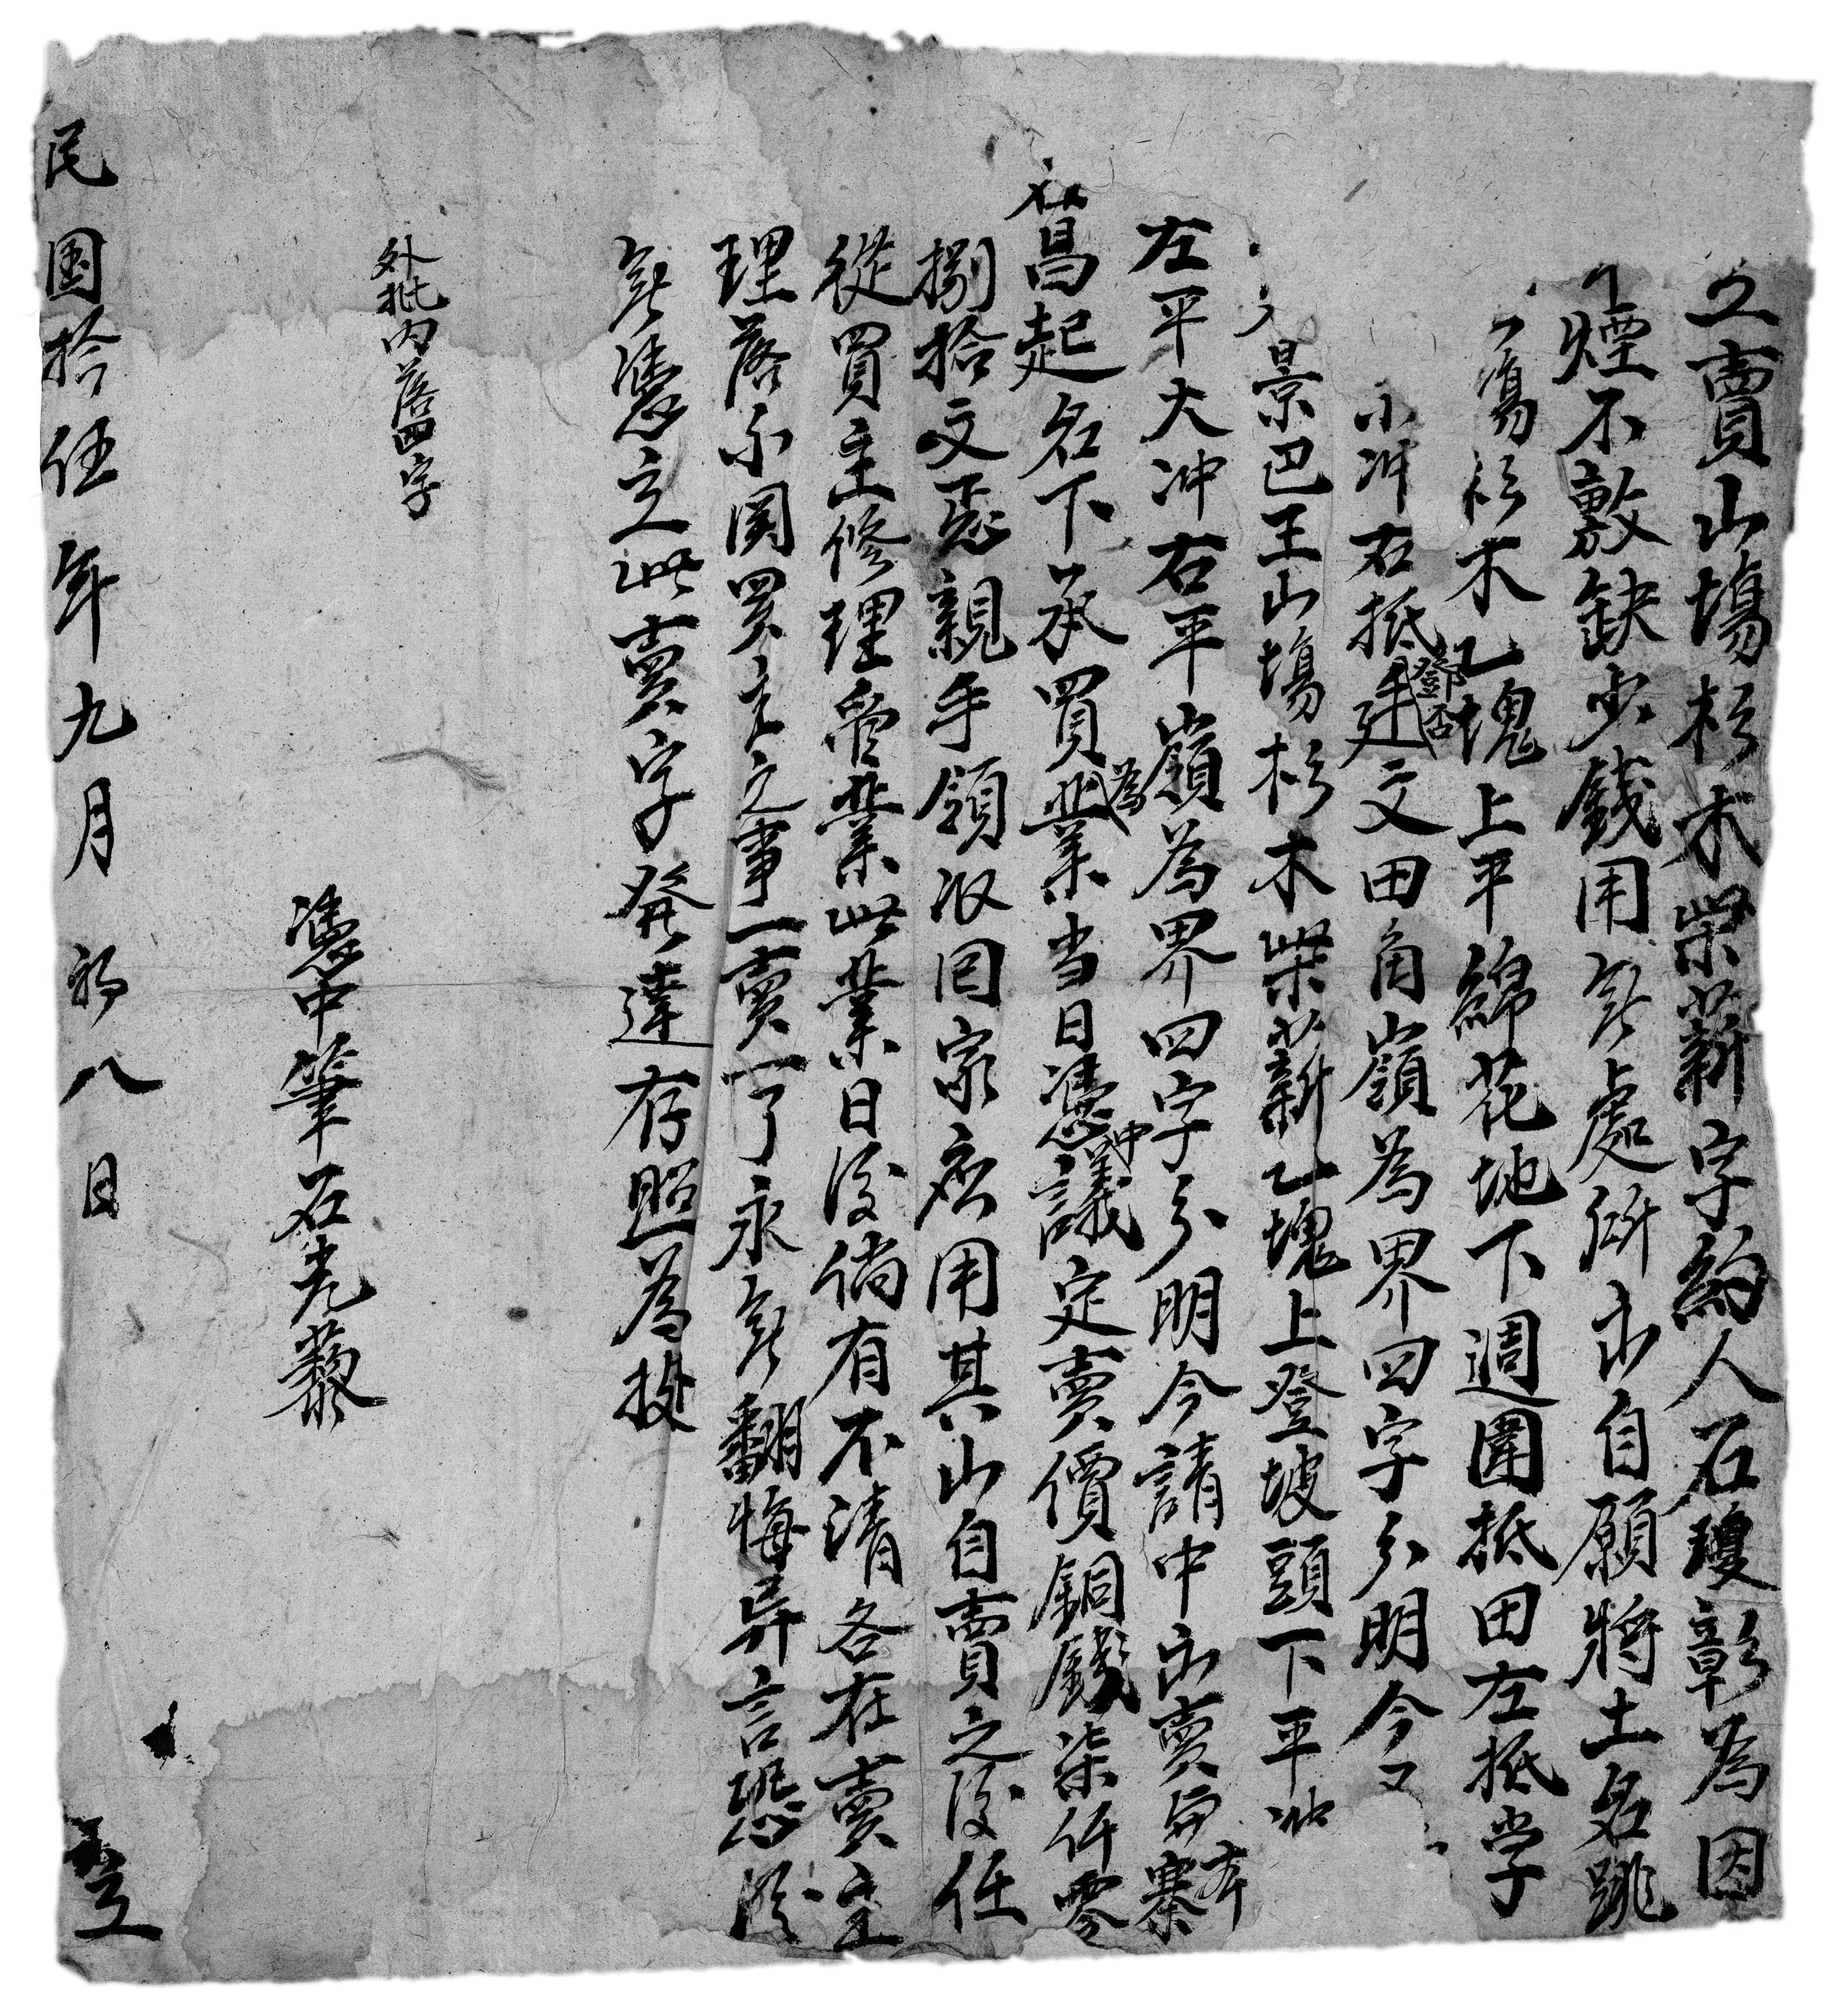 立賣山塲杉木柴薪字約人石瓊彰為因
煙不敷缺少錢用無處所出自願將土名跳
塲杉木乙塊上平綿花地下週圍抵田左抵学
小冲右抵廷文田角嶺為界四字分明今又
鄧否
景巴王山塲杉木柴薪乙塊上登坡頭下平冲
左平大冲右平嶺為界四字分明今請中出賣與本寨
石昌起名下承買為業当日憑中議定賣價銅錢柒仟零
捌拾文正親手領收囘家應用其山自賣之後任
從買主修理管業此業日後倘有不清各在賣主
理落不関買主之事一賣一了永無翻悔异言恐後
無憑立此賣字發達存照為據
外批內落四字
憑中筆石光藜
民國拾伍年九月初八日立